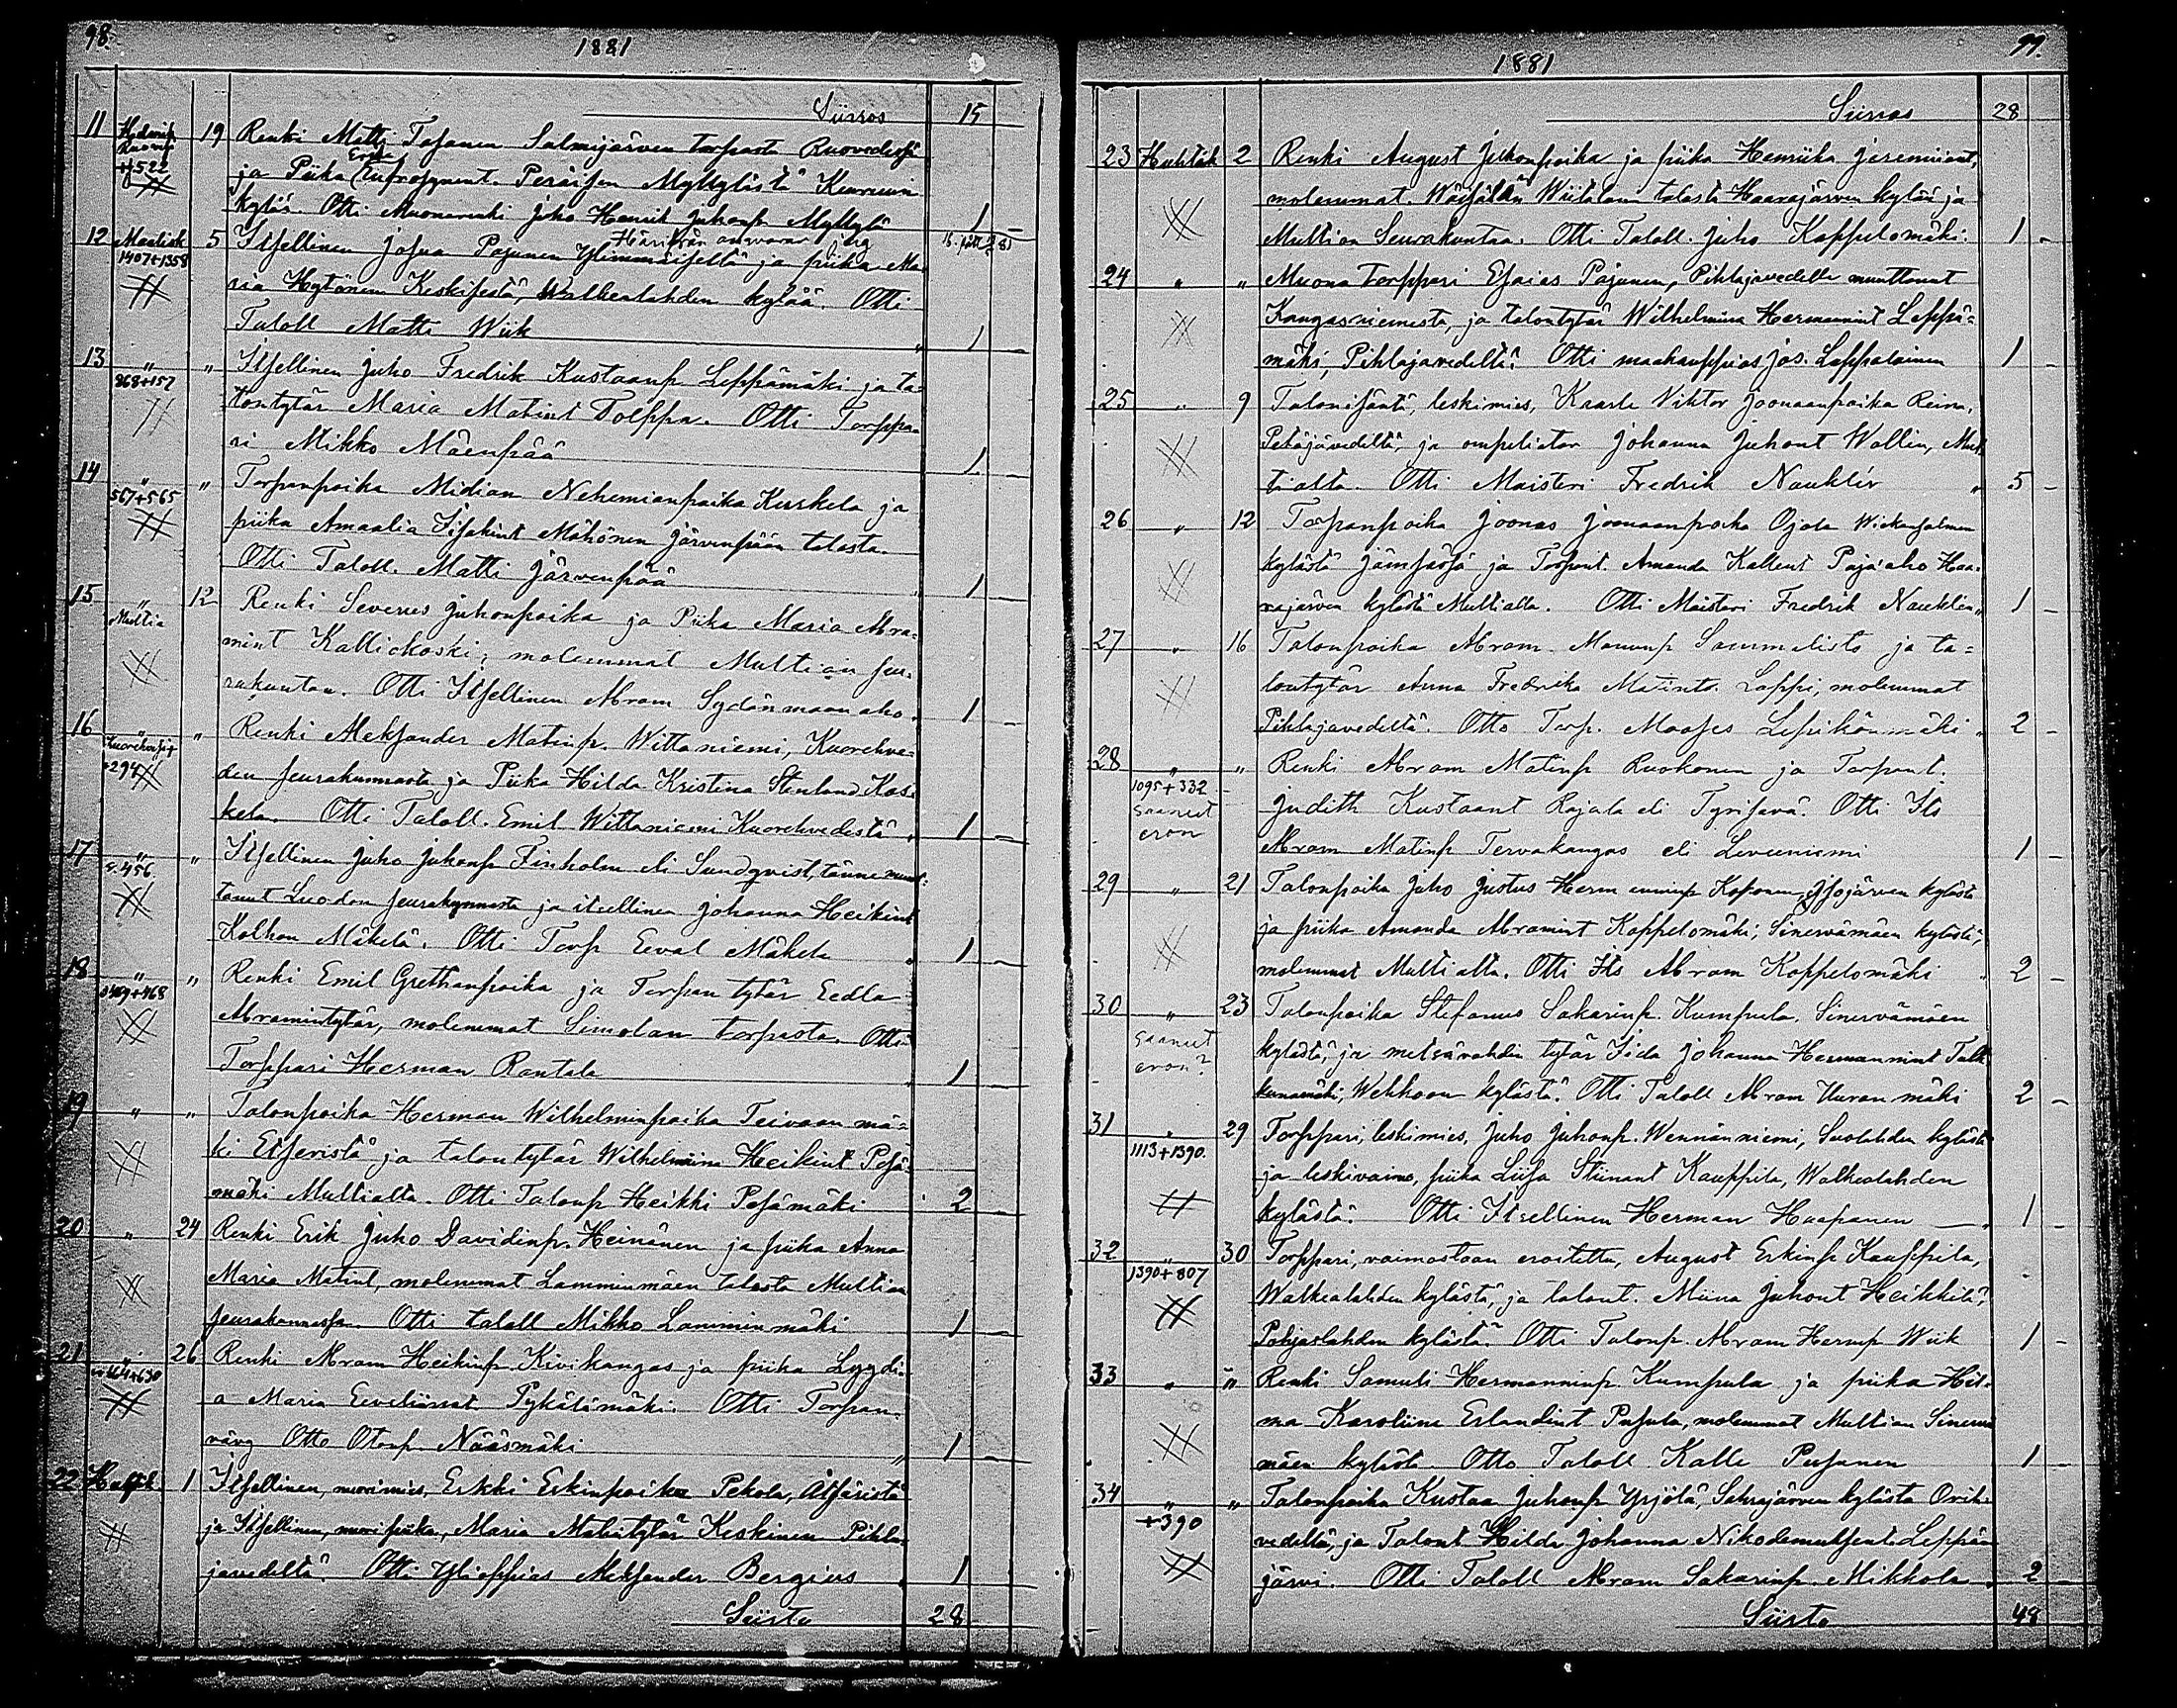 98.
1881
Siirros 15
11 Helmik 19 Renki Matti Tafanen Salmijärven torpasta Ruovedessä
Ruovesi
+522
ja Piika Erika Eufrosynent. Peräisen Myllylästä Keuruun
kylää. Otti Muonarenki Juho Henrik Juhonp Myllylä 1 -
12 Maalisk 5 Itsellinen Josua Pajunen Ylimmäiseltä ja piika Ma=
1407+1358
ria Hytönen Keskisestä, Walkealahden kylää. Otti
Taloll Matti Wiik 1 -
13 " " Itsellinen Juho Fredrik Kustaanp Leppämäki ja ta=
868+157
lontytär Maria Matint Tolppa. Otti Torppa=
ri Mikko Mäenpää 1 -
14 " " Torpanpoika Midian Nehemianpoika Kuskela ja
567+565
piika Amaalia Iisakint Mähönen Järvenpään talosta.
Otti Taloll. Matti Järvenpää 1 -
15 " 12 Renki Severus Juhonpoika ja Piika Maria Abra=
Multia
mint Kalliokoski, molemmat Multian seu=
rakuntaa. Otti Itsellinen Abram Sydänmaanaho 1 -
16 " " Renki Aleksander Matinp. Wittaniemi, Kuoreheve=
+294
den seurakunnasta ja Piika Hilda Kristina Stenlund Kos=
kela. Otti Taloll. Emil Wittaniemi Kuorehvedestä 1 -
17 " " Itsellinen Juho Juhonp Finholm eli Sundqvist, tänne muut=
s. 456.
tanut Luodon seurakunnasta ja itsellinen Johanna Heikint
Kolhon Mäkelä. Otti Torp Eeval Mäkelä 1 -
18 " " Renki Emil Grethanpoika ja Torpan tytär Eedla
Abramintytär, molemmat Simolan torpasta. Otti
Torppari Herman Rantala 1 -
19 " " Talonpoika Herman Wilhelminpoika Teivaan mä=
ki Etseristä ja talontytär Wilhelmiina Heikint Pesä=
mäki Multialta. Otti Talonp Heikki Pesämäki 2 -
20 " 24 Renki Erik Juho Davidinp. Heinänen ja piika Anna
Maria Matint, molemmat Lamminmäen talosta Multian
seurakunnassa. Otti taloll Mikko Lamminmäki 1 -
21 " 26 Renki Abram Heikinp Kivikangas ja piika Lyydi=
a Maria Eeveliinat Pykälämäki. Otti Torpan=
vävy Otto Otonp Nääsmäki 1 -
22 Huhtik. 1 Itsellinen, nuorimies, Erkki Erkinpoika Pekola, Ätsäristä
ja Itsellinen, nuori piika, Maria Matintytär Keskinen Pihla=
javedeltä. Otti Ylioppias Aleksander Bergius 1
Siirto 28
99.
1881
Siirros 28
23 Huhtik 2 Renki August Juhonpoika ja piika Henriika Jeremiiant,
molemmat Wiitalan talosta Haarajärven kylää ja
Multian Seurakuntaa. Otti Taloll. Juho Koppelomäki. 1 -
24 " " Muona Torppari Esaias Pajunen, Pihlajavedelle muuttanut
Kangasniemestä, ja talontytär Wilhelmina Hermannint Leppä=
mäki, Pihlajavedeltä. Otti maakauppias Jos. Lappalainen 1 -
25 " 9 Talonisäntä, leskimies, Kaarle Viktor Joonaanpoika Reina,
Petäjävedeltä, ja ompeliatar Johanna Juhont Wallin, Mul=
tialta. Otti Maisteri Fredrik Nauklér " 5 -
26 " 12 Torpanpoika Joonas Joonaanpoika Ojala
kylästä Jämsässä ja Torpant. Amanda Kallent Paja'aho Haa=
rajärven kylästä Multialla. Otti Maisteri Fredrik Nauklér " 1 -
27 " 16 Talonpoika Abram Manunp Sammalisto ja ta=
lontytär Anna Fredrika Matint. Lappi, molemmat
Pihlajavedeltä. Otto Torp. Mooses Lepikönmäki " 2 -
28 " " Renki Abram Matinp Ruokonen ja Torpant.
1095+332
Judith Kustaant Rajala eli Tyrisevä. Otti Its
saanut
eron
Abram Matinp Tervakangas eli Liveeniemi 1 -
29 " 21 Talonpoika Juho Justus Hermanninp Koposen, Isojärven kylästä
ja piika Amanda Abramint Koppelomäki, Sinervämäen kylästä,
molemmat Multialta. Otti Its Abram Koppelomäki " 2 -
30 " 23 Talonpoika Stefanus Sakarinp. Kumpula, Sinervämäen
saanut
eron?
kylästä, ja metsävahdin tytär Iida Johanna Hermannint Talk=
kunamäki, Wehkoon kylästä. Otti Taloll Abram Uuranmäki 2 -
31 " 29 Torppari, leskimies, Juho Juhonp. Wennänniemi, Suolahden kylästä
1113+1390.
ja leskivaimo, piika Liisa Stiinant Kauppila, Walkealahden
kylästä. Otti Itsellinen Herman Haapanen " 1 -
32 " 30 Torppari, vaimostaan eroitettu, August Erkinp Kauppila,
1390+807
Walkealahden kylästä, ja talont. Miina Juhont Heikkilä,
Pohjaslahden kylästä. Otti Talonp. Abram Hermp Wiik 1 -
33 " " Renki Samuli Hermanninp. Kumpula ja piika Hil=
ma Karoliina Erlandint Pusula, molemmat Multian Sinervä
mäen kylästä. Otto Taloll Kalle Pusanen 1 -
34 " " Talonpoika Kustaa Juhonp Yrjölä, Sahrajärven kylästä Orih=
+390
vedeltä, ja Talont Hilda Johanna Nikodemuksent. Leppä=
järvi. Otti Taloll Abram Sakarinp. Mikkola " 2 -
Siirto 48